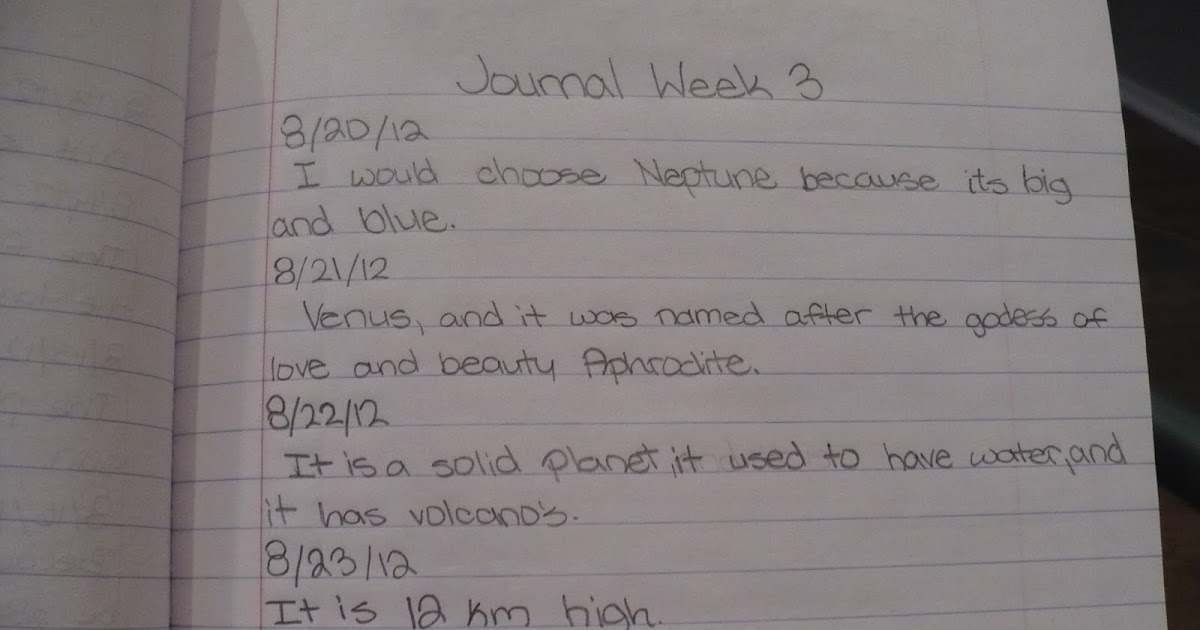 Journal Week 3
8/20/12
I would choose Neptune because its big
and blue.
8/21/12
Venus, and it was named after the godess of
love and beauty Aphrodite.
8/22/12
It is a solid planet, it used to have water, and
it has volcano's.
8/23/12
It is 12 km high.